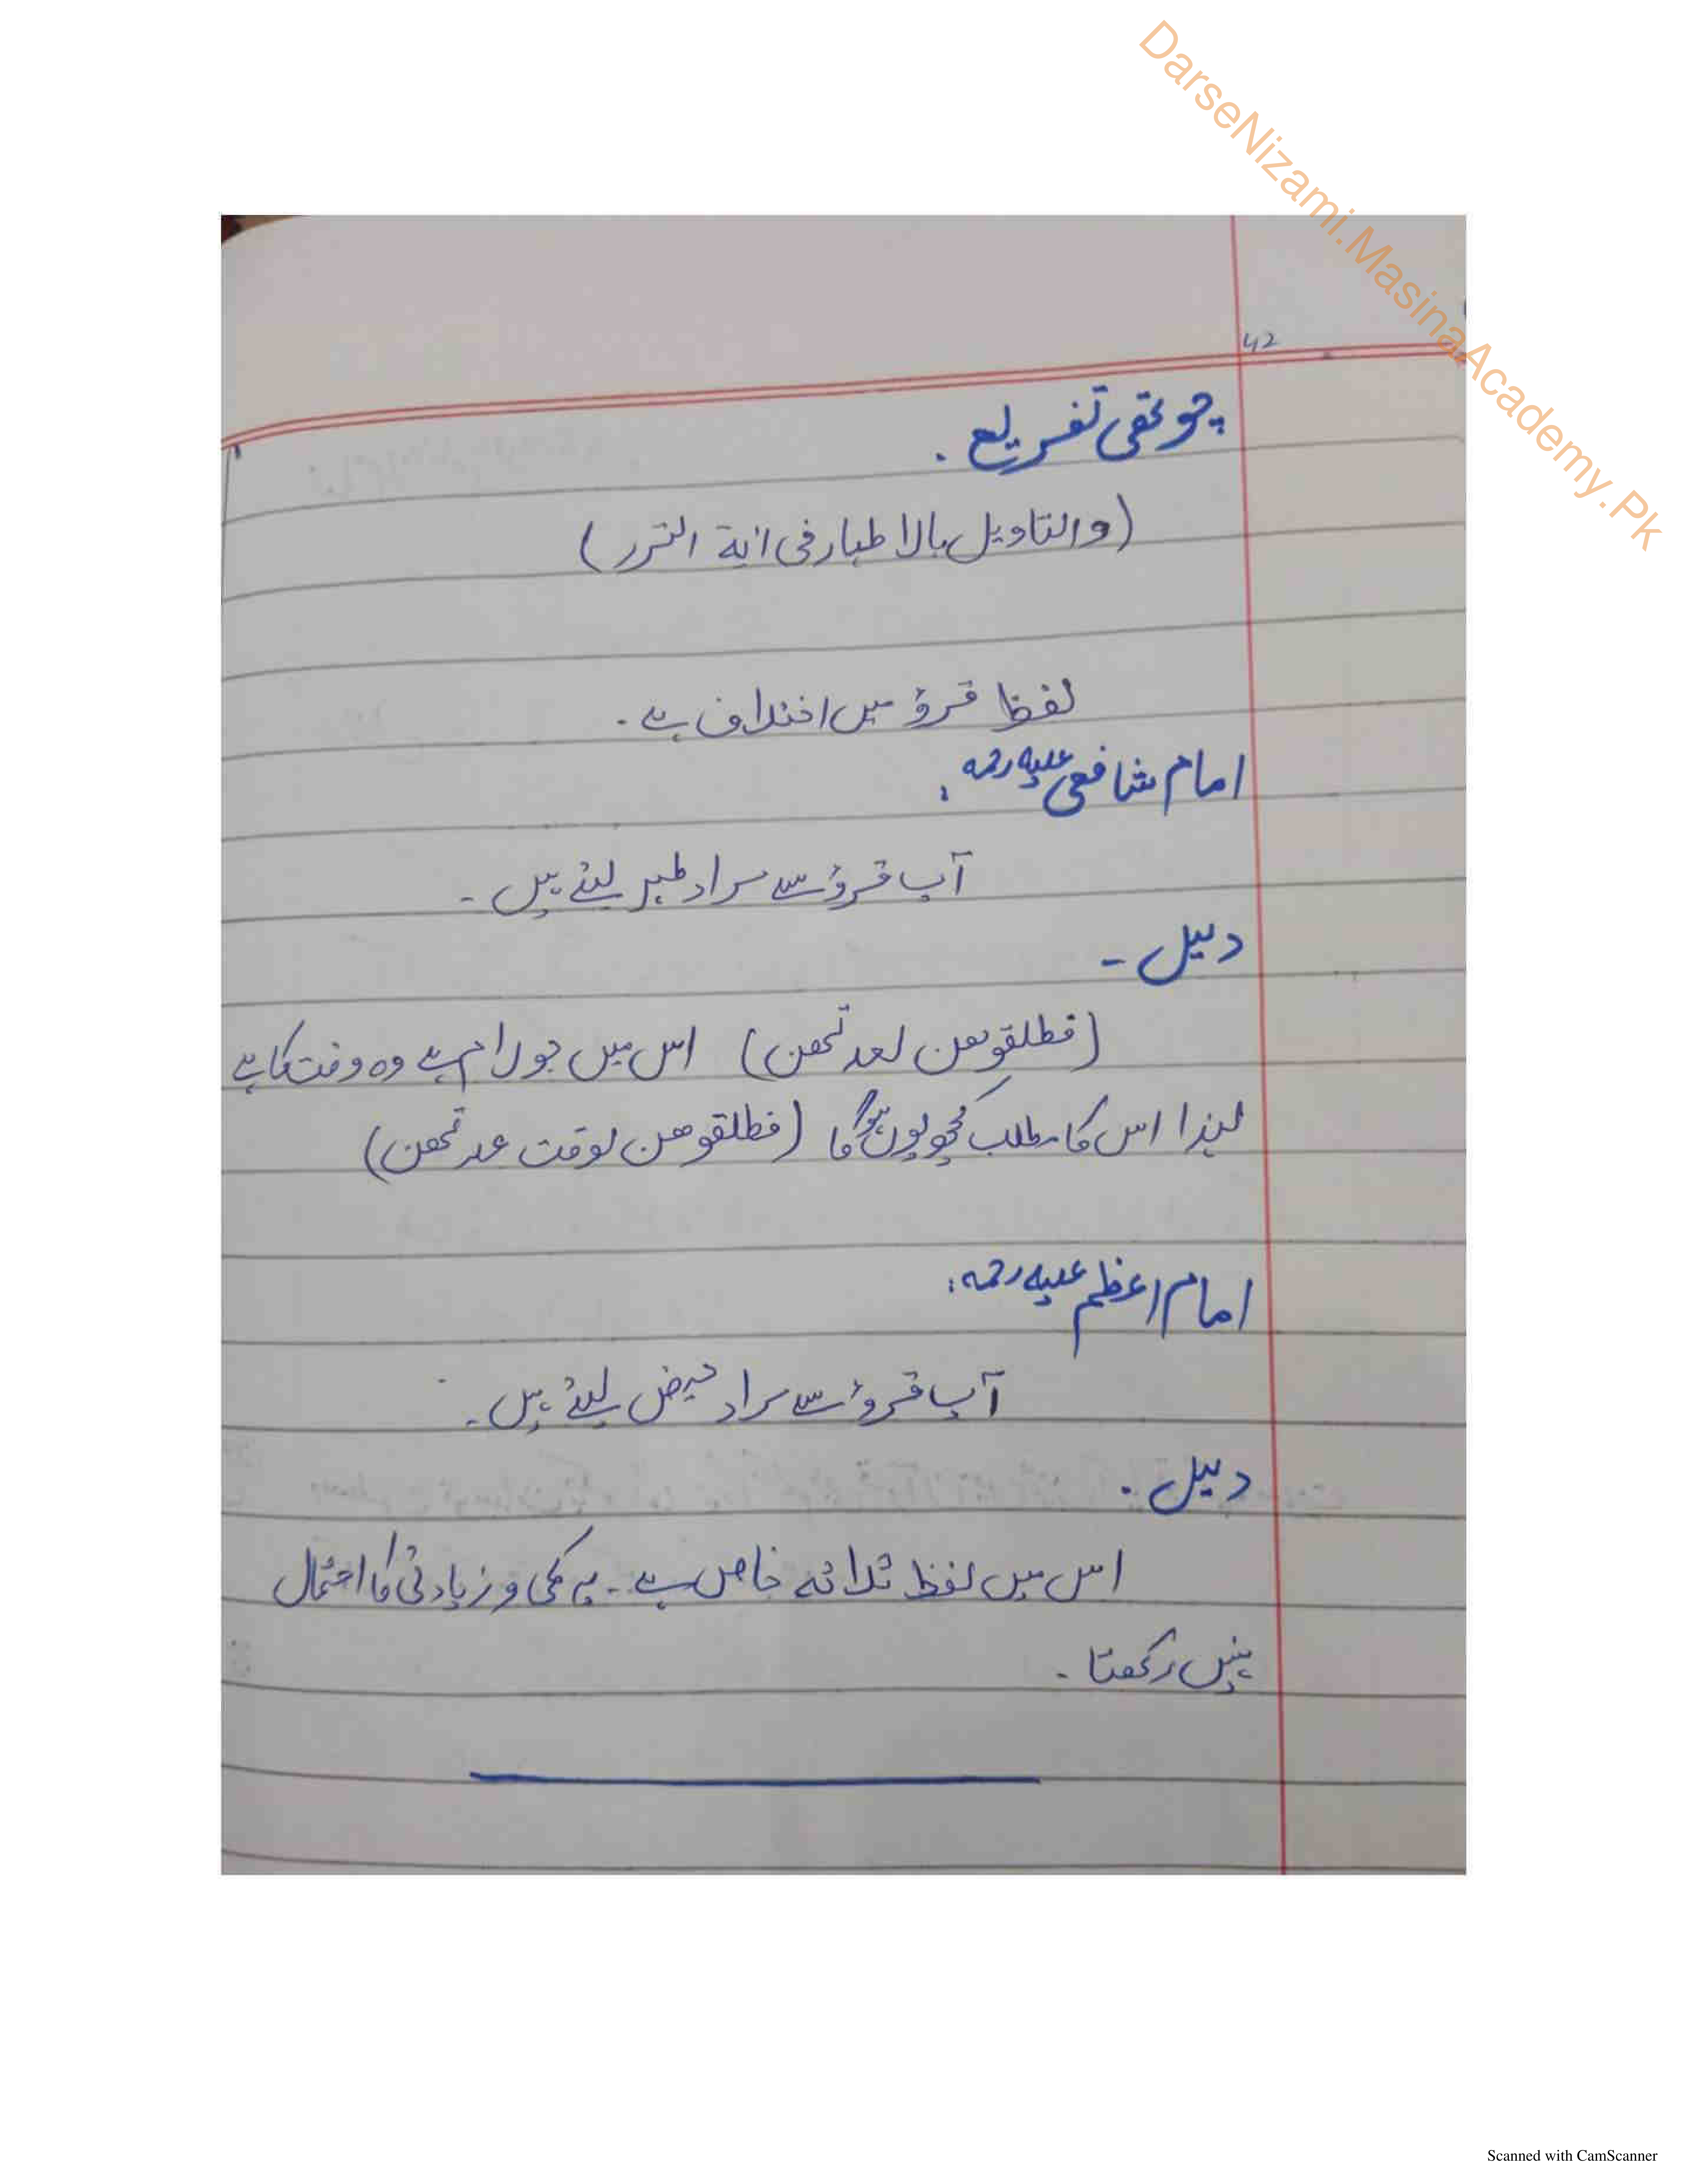 DarseNizami.MasinaAcademy.Pk
42
چوتھی تفریع .
(والتاویل بالاطہار فی اٰیة الترر)
لفظ قرؤ میں اختلاف ہے .
امام شافعی علیہ رحمہ :
آپ قرؤ سے مراد طہر لیتے ہیں ۔
دلیل ۔
(فطلقوھن لعدتھن) اس میں جو لام ہے وہ وقت کا ہے
لہذا اس کا مطلب کچھ یوں ہوگا (فطلقوھن لوقت عدتھن)
امام اعظم علیہ رحمہ :
آپ قروء سے مراد حیض لیتے ہیں ۔
دلیل .
اس میں لفظ ثلاثہ خاص ہے ۔ یہ کمی و زیادتی کا احتمال
نہیں رکھتا ۔
Scanned with CamScanner